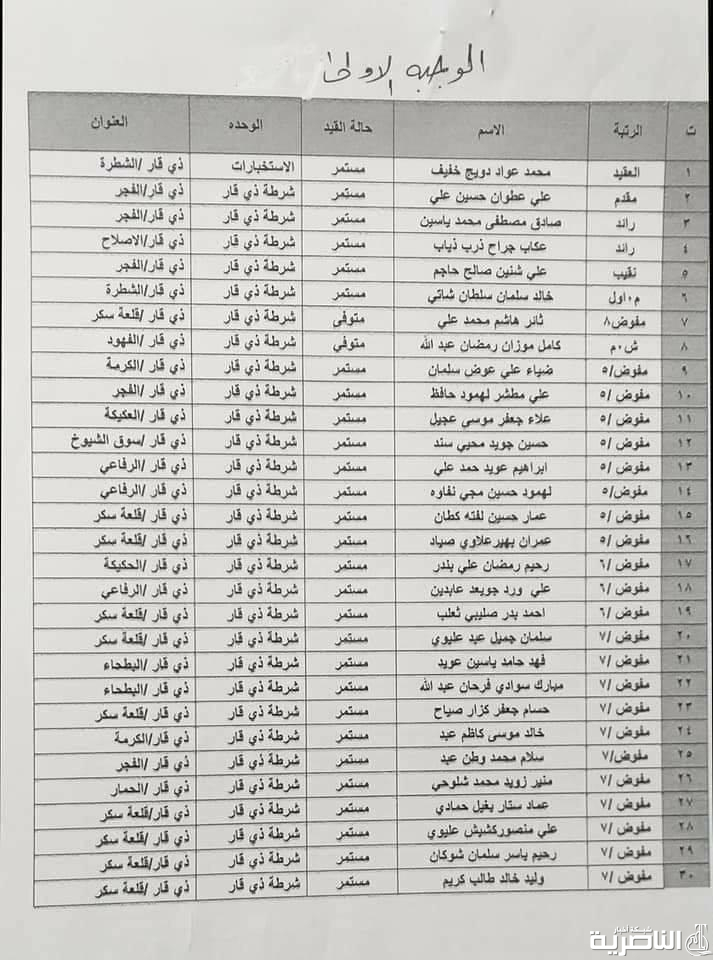 الوجبه الاولى
ت الرتبة الاسم حالة القيد الوحده العنوان
١ العقيد محمد عواد دويج خفيف مستمر الاستخبارات ذي قار /الشطرة
٢ مقدم علي عطوان حسين علي مستمر شرطة ذي قار ذي قار/الفجر
٣ رائد صادق مصطفى محمد ياسين مستمر شرطة ذي قار ذي قار/الفجر
٤ رائد عكاب جراح ذرب ذياب مستمر شرطة ذي قار ذي قار/الاصلاح
٥ نقيب علي شنين صالح حاجم مستمر شرطة ذي قار ذي قار/الفجر
٦ م٠اول خالد سلمان سلطان شاتي مستمر شرطة ذي قار ذي قار/الشطرة
٧ مفوض٨ ثائر هاشم محمد علي متوفى شرطة ذي قار ذي قار/قلعة سكر
٨ ش٠م كامل موزان رمضان عبد الله متوفي شرطة ذي قار ذي قار /الفهود
٩ مفوض /٥ ضياء علي عوض سلمان مستمر شرطة ذي قار ذي قار /الكرمة
١٠ مفوض /٥ علي مطشر لهمود حافظ مستمر شرطة ذي قار ذي قار /الفجر
١١ مفوض /٥ علاء جعفر موسي عجيل مستمر شرطة ذي قار ذي قار/العكيكة
١٢ مفوض /٥ حسين جويد محيي سند مستمر شرطة ذي قار ذي قار /سوق الشيوخ
١٣ مفوض /٥ ابراهيم عويد حمد علي مستمر شرطة ذي قار ذي قار /الرفاعي
١٤ مفوض /٥ لهمود حسين مجي نفاوه مستمر شرطة ذي قار ذي قار /الرفاعي
١٥ مفوض /٥ عمار حسين لفته كطان مستمر شرطة ذي قار ذي قار /قلعة سكر
١٦ مفوض /٥ عمران بهيرعلاوي صياد مستمر شرطة ذي قار ذي قار /قلعة سكر
١٧ مفوض /٦ رحيم رمضان علي بندر مستمر شرطة ذي قار ذي قار /الحكيكة
١٨ مفوض /٦ علي ورد جويعد عابدين مستمر شرطة ذي قار ذي قار /الرفاعي
١٩ مفوض /٦ احمد بدر صليبي ثعلب مستمر شرطة ذي قار ذي قار /قلعة سكر
٢٠ مفوض /٧ سلمان جميل عبد عليوي مستمر شرطة ذي قار ذي قار /قلعة سكر
٢١ مفوض /٧ فهد حامد ياسين عويد مستمر شرطة ذي قار ذي قار /البطحاء
٢٢ مفوض /٧ مبارك سوادي فرحان عبد الله مستمر شرطة ذي قار ذي قار /البطحاء
٢٣ مفوض /٧ حسام جعفر كزار صياح مستمر شرطة ذي قار ذي قار /قلعة سكر
٢٤ مفوض /٧ خالد موسى كاظم عبد مستمر شرطة ذي قار ذي قار/الكرمة
٢٥ مفوض/٧ سلام محمد وطن عبد مستمر شرطة ذي قار ذي قار /الفجر
٢٦ مفوض /٧ منير زويد محمد شلوحي مستمر شرطة ذي قار ذي قار /الحمار
٢٧ مفوض /٧ عماد ستار بغيل حمادي مستمر شرطة ذي قار ذي قار/قلعة سكر
٢٨ مفوض /٧ علي منصوركشيش عليوي مستمر شرطة ذي قار ذي قار /قلعة سكر
٢٩ مفوض /٧ رحيم ياسر سلمان شوكان مستمر شرطة ذي قار ذي قار/قلعة سكر
٣٠ مفوض /٧ وليد خالد طالب كريم مستمر شرطة ذي قار ذي قار /قلعة سكر
شبكة اخبار
الناصرية